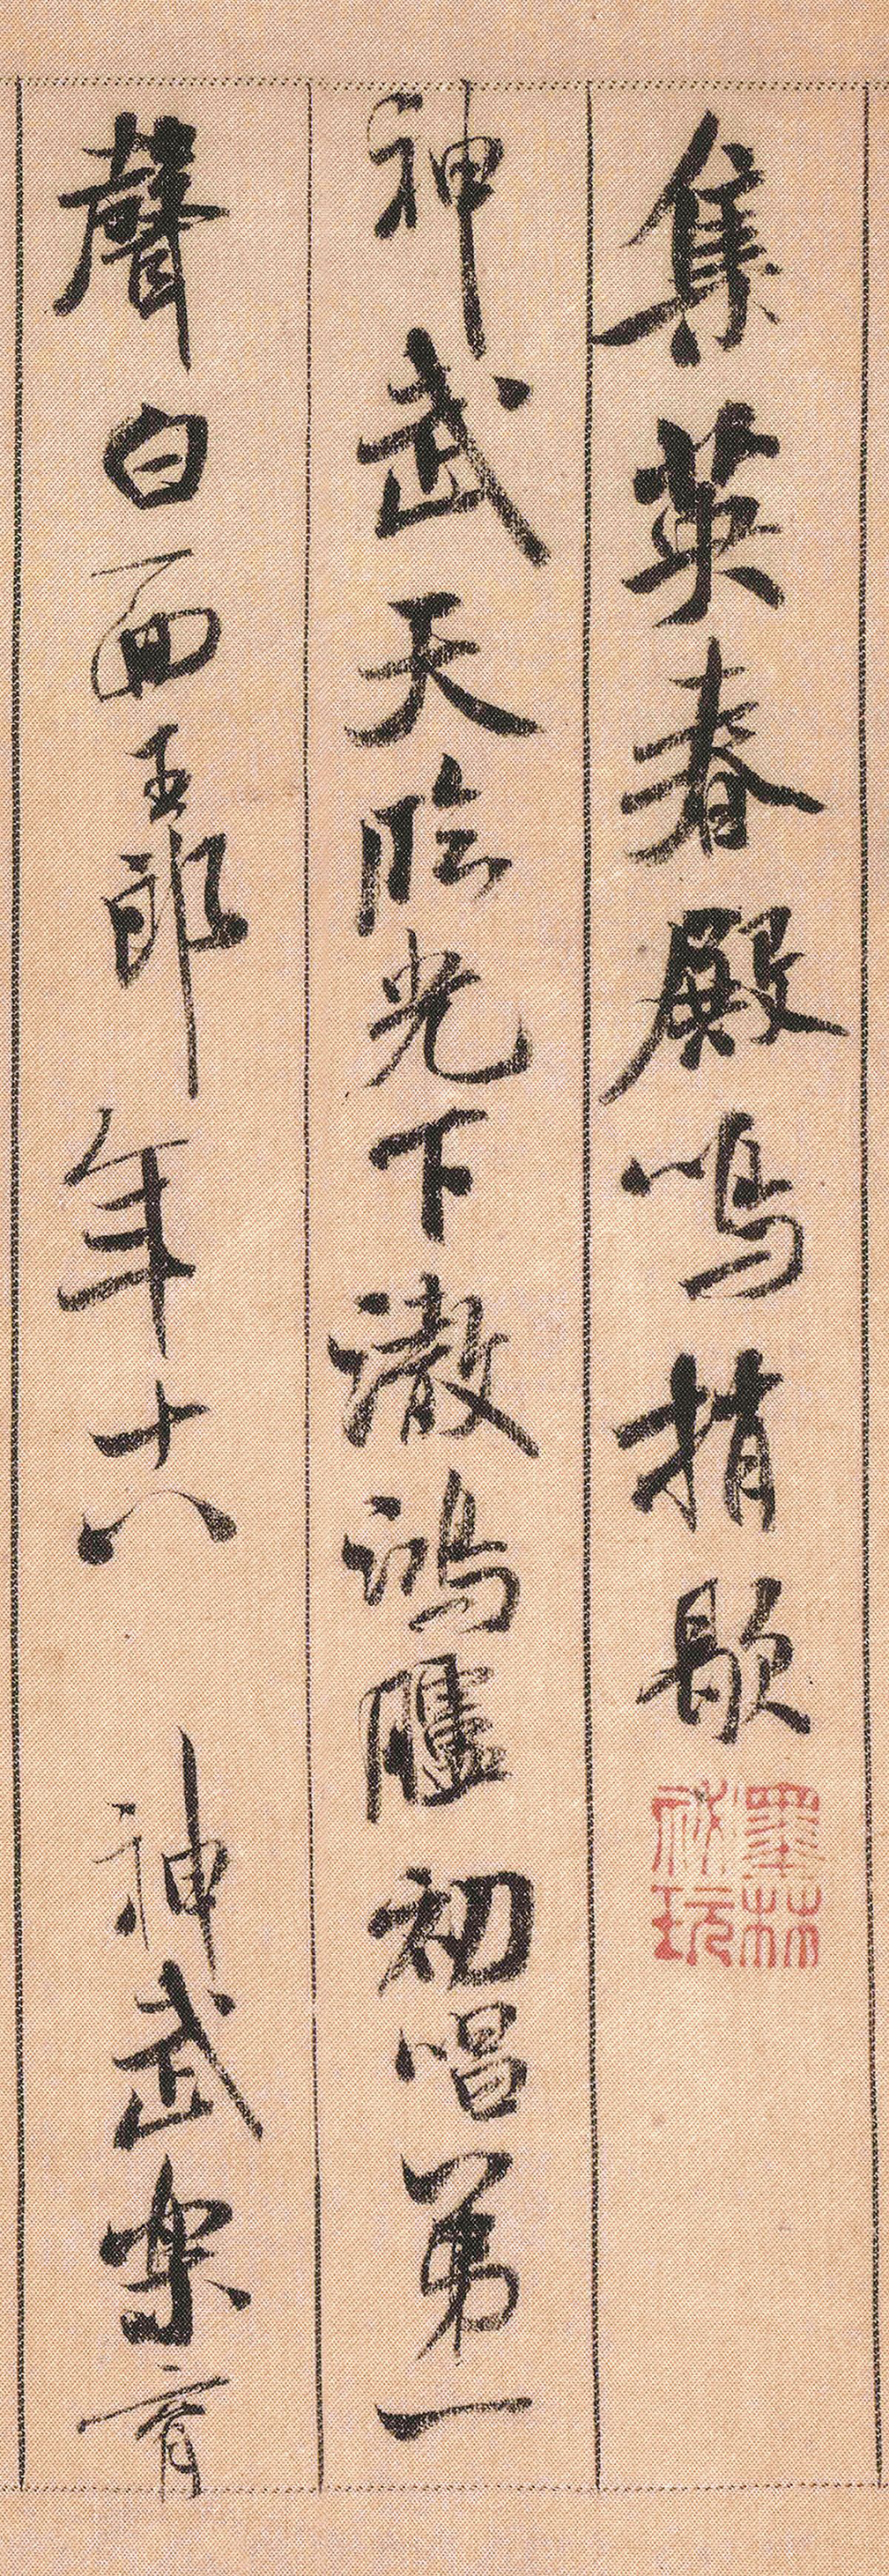 集英春殿鳴捎歇
墨林祕玩
神武天臨光下澈鴻臚初唱第一
聲白面王郎年十八 神武樂育